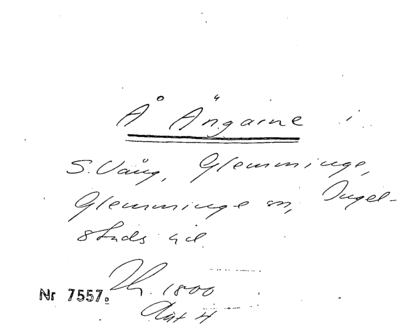 Å Ängarne i
S. Vång, Glemminge,
Glemminge sn, Ingel-
stads hd.
Nr 7557. 1800
Akt 4